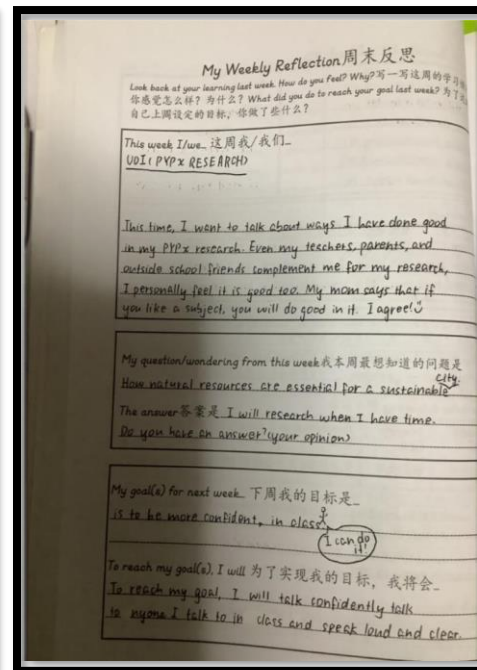 My Weekly Reflection周末反思
Look back at your learning last week. How do you feel? Why?写一写这周的学习
你感觉怎么样？为什么？What did you do to reach your goal last week? 为了
自己上周设定的目标，你做了些什么？
This week I/we_ 这周我/我们_
UOI( PYPx RESEARCH)
This time, I want to talk about ways I have done good
in my PYPx research. Even my teachers, parents, and
outside school friends complement me for my research,
I personally feel it is good too. My mom says that if
you like a subject, you will do good in it. I agree!
My question/wondering from this week我本周最想知道的问题是
How natural resources are essential for a sustainable city.
The answer答案是 I will research when I have time.
Do you have an answer?(your opinion)
My goal(s) for next week_ 下周我的目标是_
is to be more confident, in class.
I can do it!
To reach my goal(s), I will 为了实现我的目标，我将会_
To reach my goal, I will talk confidently talk
to nyone I talk to in class and speak loud and clear.